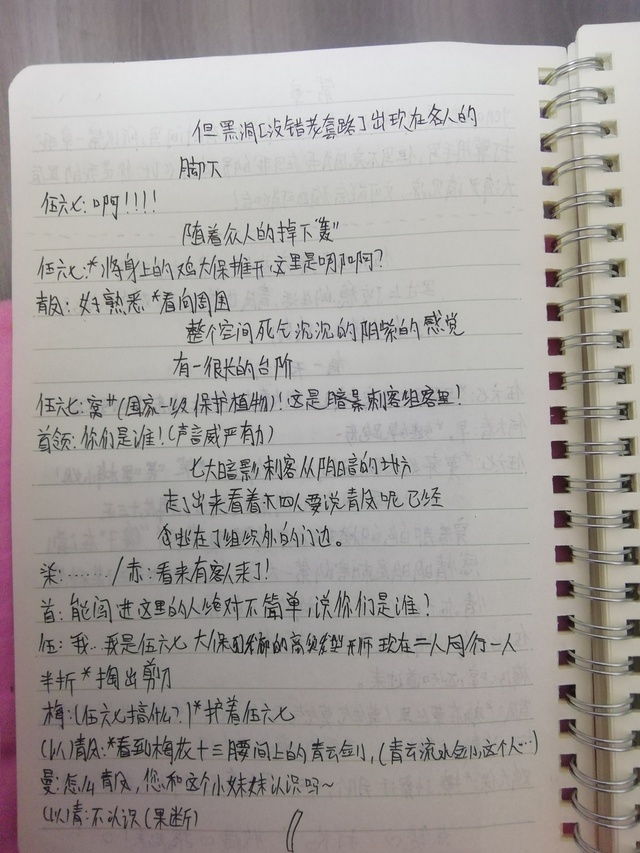 但黑洞[没错老套路]出现在各人的
脚下
伍六七:啊!!!!
随着众人的掉下"轰"
伍六七:*将身上的鸡大保推开,这里是哪啊?
青凤:好熟悉 *看向周围
整个空间死气沉沉的阴紫的感觉
有一很长的台阶
伍六七:窝#(国家一级保护植物)!这是暗影刺客组客里!
首领:你们是谁!(声音威严有力)
七大暗影刺客从阴暗的地方
走了出来看着大四人要说青凤呢已经
在了组织外的门边。
柒:....../赤:看来有客人来了!
首:能闯进这里的人绝对不简单,说你们是谁!
伍:我..我是伍六七 大保的高级发型师 现在二人同行一人
半折 *掏出剪刀
梅:(伍六七搞什么?)*护着伍六七
(以)青凤:*看到梅花十三腰间上的青云剑,(青云流水剑这个人...)
曼:怎么青凤,您和这个小妹妹认识吗~
(以)青:不认识(果断)